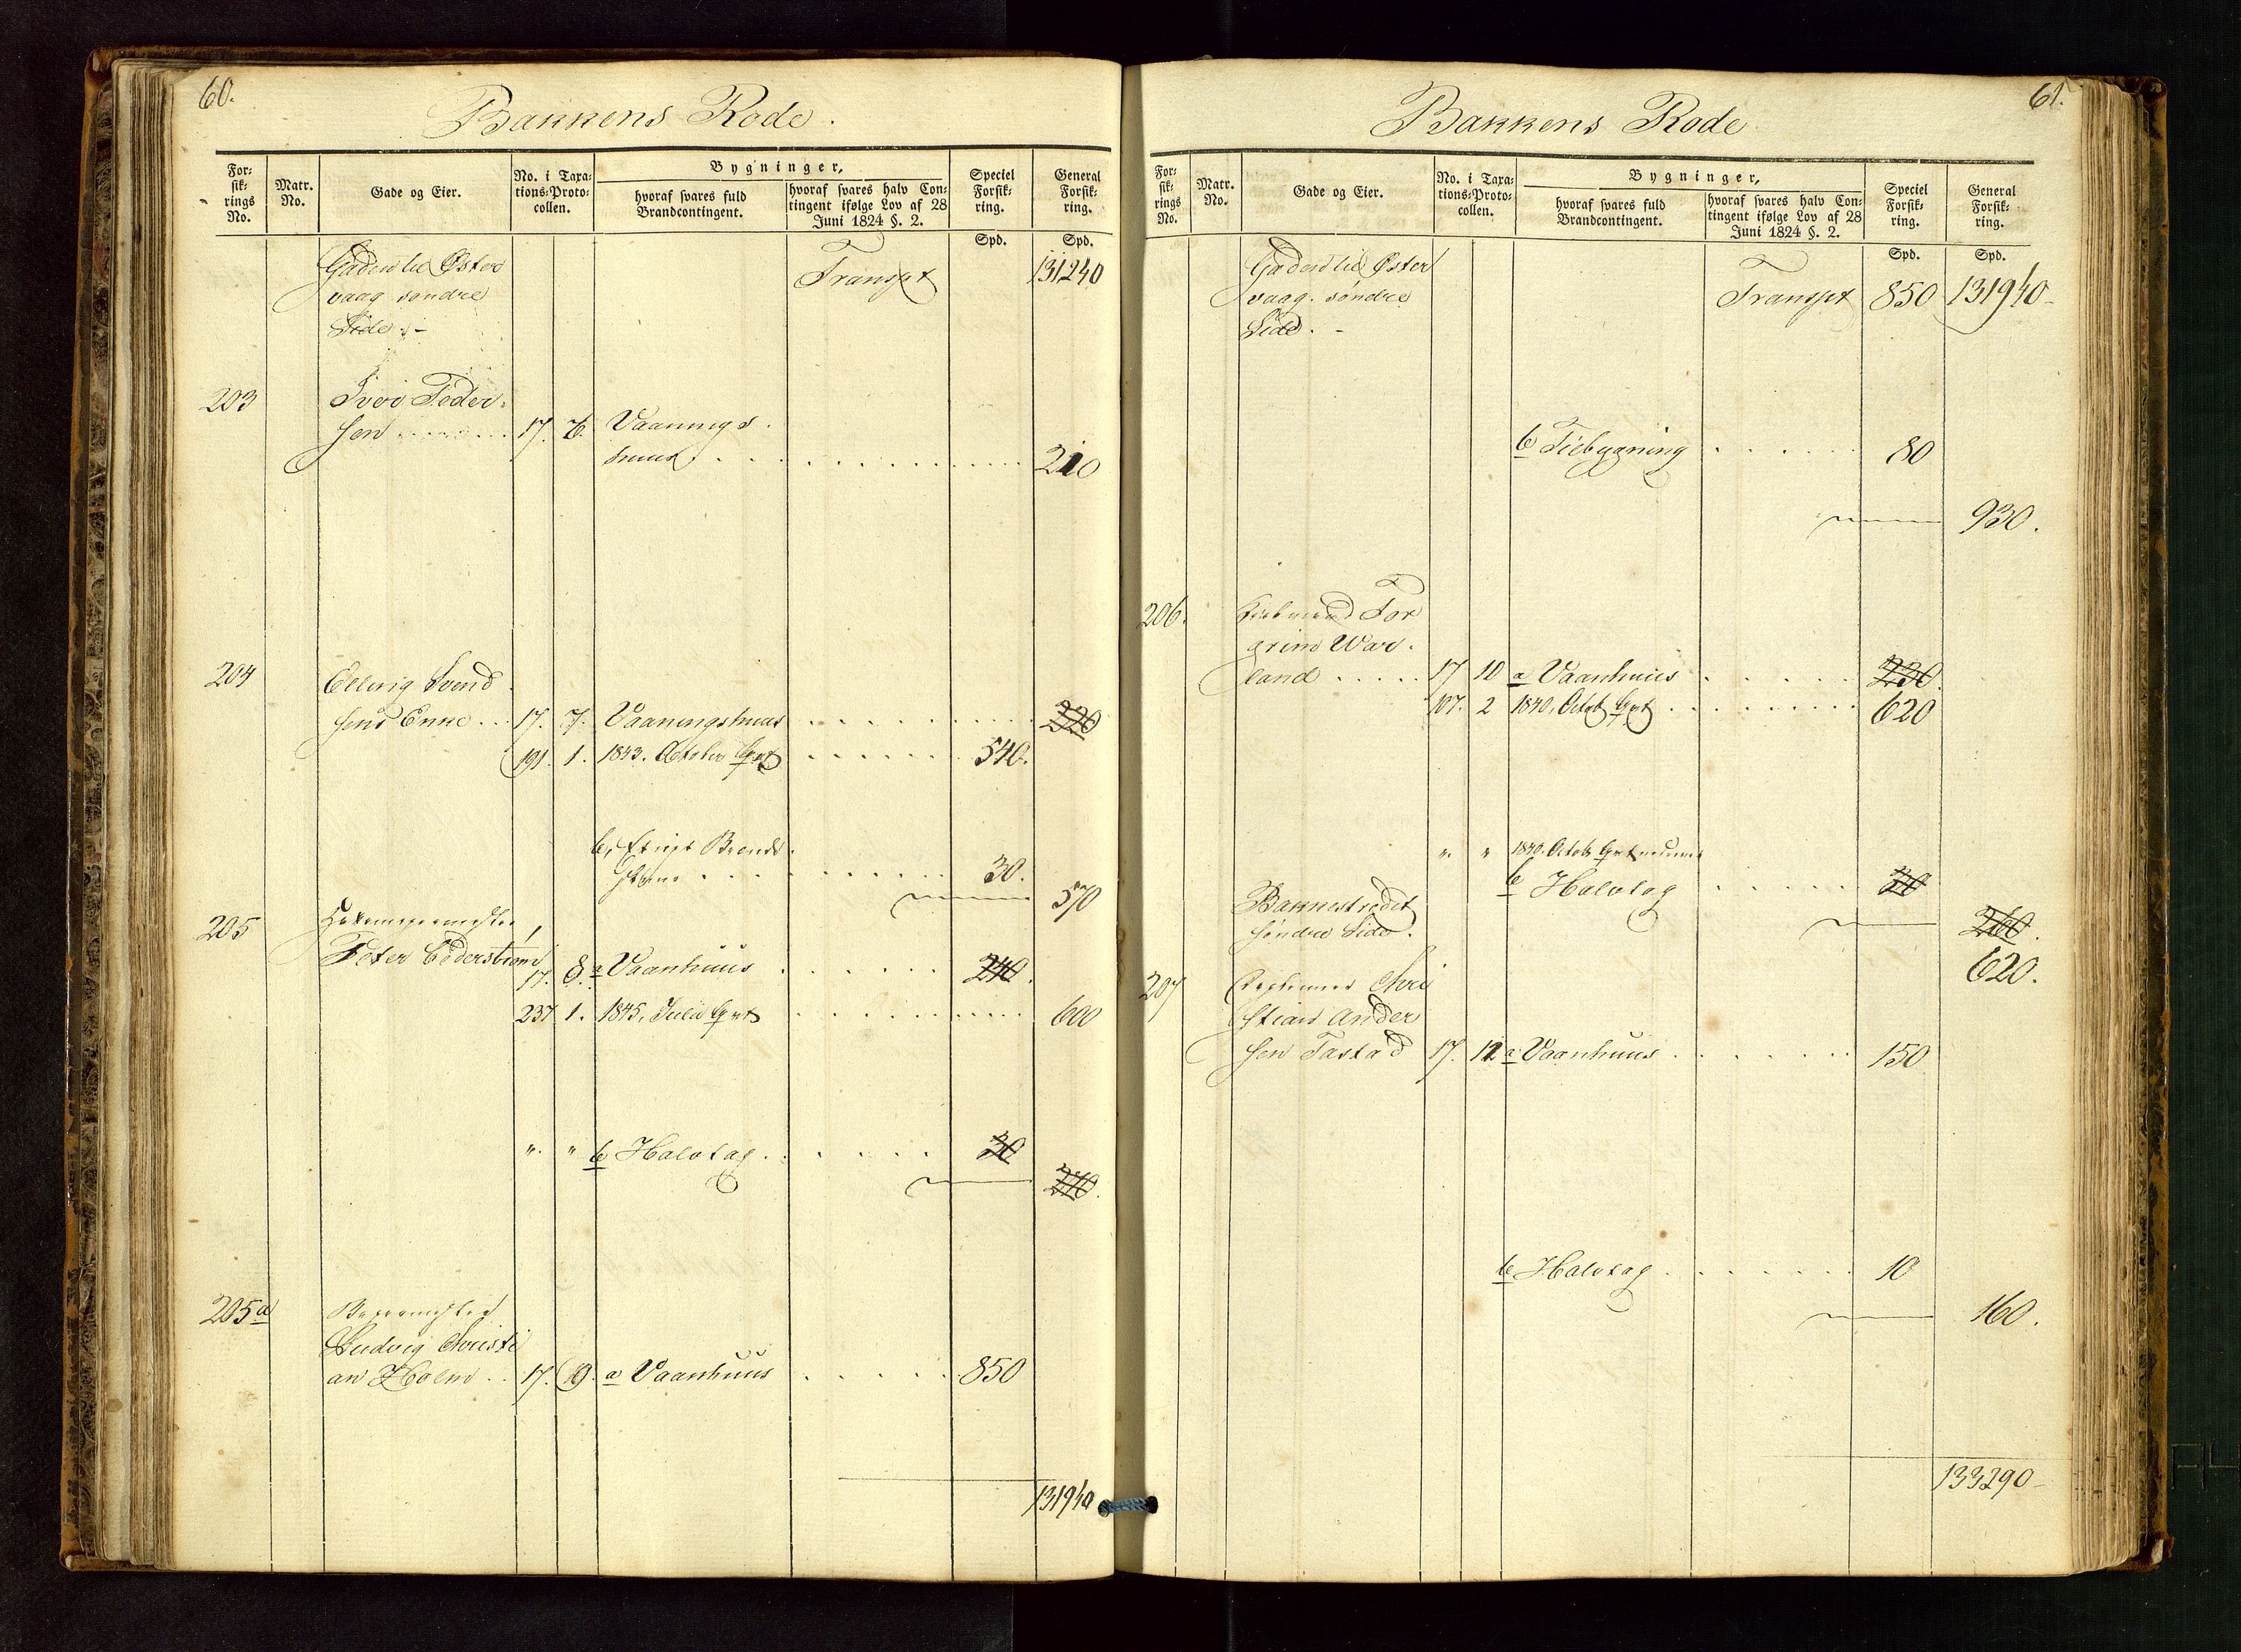 60.
Bakkens Rode.
For-
sik-
rings
No.
Matr.
No.
Gade og Eier.
No. i Taxa-
tions-Proto-
collen.
Bygninger,
hvoraf svares fuld
Brandcontingent.
hvoraf svares halv Con-
tingent ifølge Lov af 28
Juni 1824 §. 2.
Speciel
Forsik-
ring.
General
Forsik-
ring.
Spd. Spd.
Gaden til Øster Transpt 131240
vaag søndre
Side. -
203 Iver Peder-
sen 17. 6. Vaanings
huus 210
204 Elling Svend
sens Enke 17. 7. Vaaningshuus 220
191. 1. 1843. October 540.
b,
30.
570
205
Peter Cederstrøm
17. 8. a Vaanhuus 240.
237 1. 1845, Julii 600
" " b Halvtag 30
270.
205a
Ludvig Christi
an Holm 17. 19. a Vaanhuus 850
131940
61.
Bakkens Rode
For-
sik-
rings
No.
Matr.
No.
Gade og Eier.
No. i Taxa-
tions-Proto-
collen.
Bygninger,
hvoraf svares fuld
Brandcontingent.
hvoraf svares halv Con-
tingent ifølge Lov af 28
Juni 1824 §. 2.
Speciel
Forsik-
ring.
General
Forsik-
ring.
Spd. Spd.
Gaden til Øster
vaag. søndre Transpt 850 131940-
Side. -
b Tilbygning 80
930.
206. Tor
grim War-
land 17 10 a Vaanhuus 230.
107. 2 1840, Octob 620
" " 1840. Octob
b Halvtag
Bakkestrædet
søndre Side. 260.
620.
207 Chri
stian Ander
sen Tastad 17. 12 a Vaanhuus 150
b Halvtag 10
160.
133290-